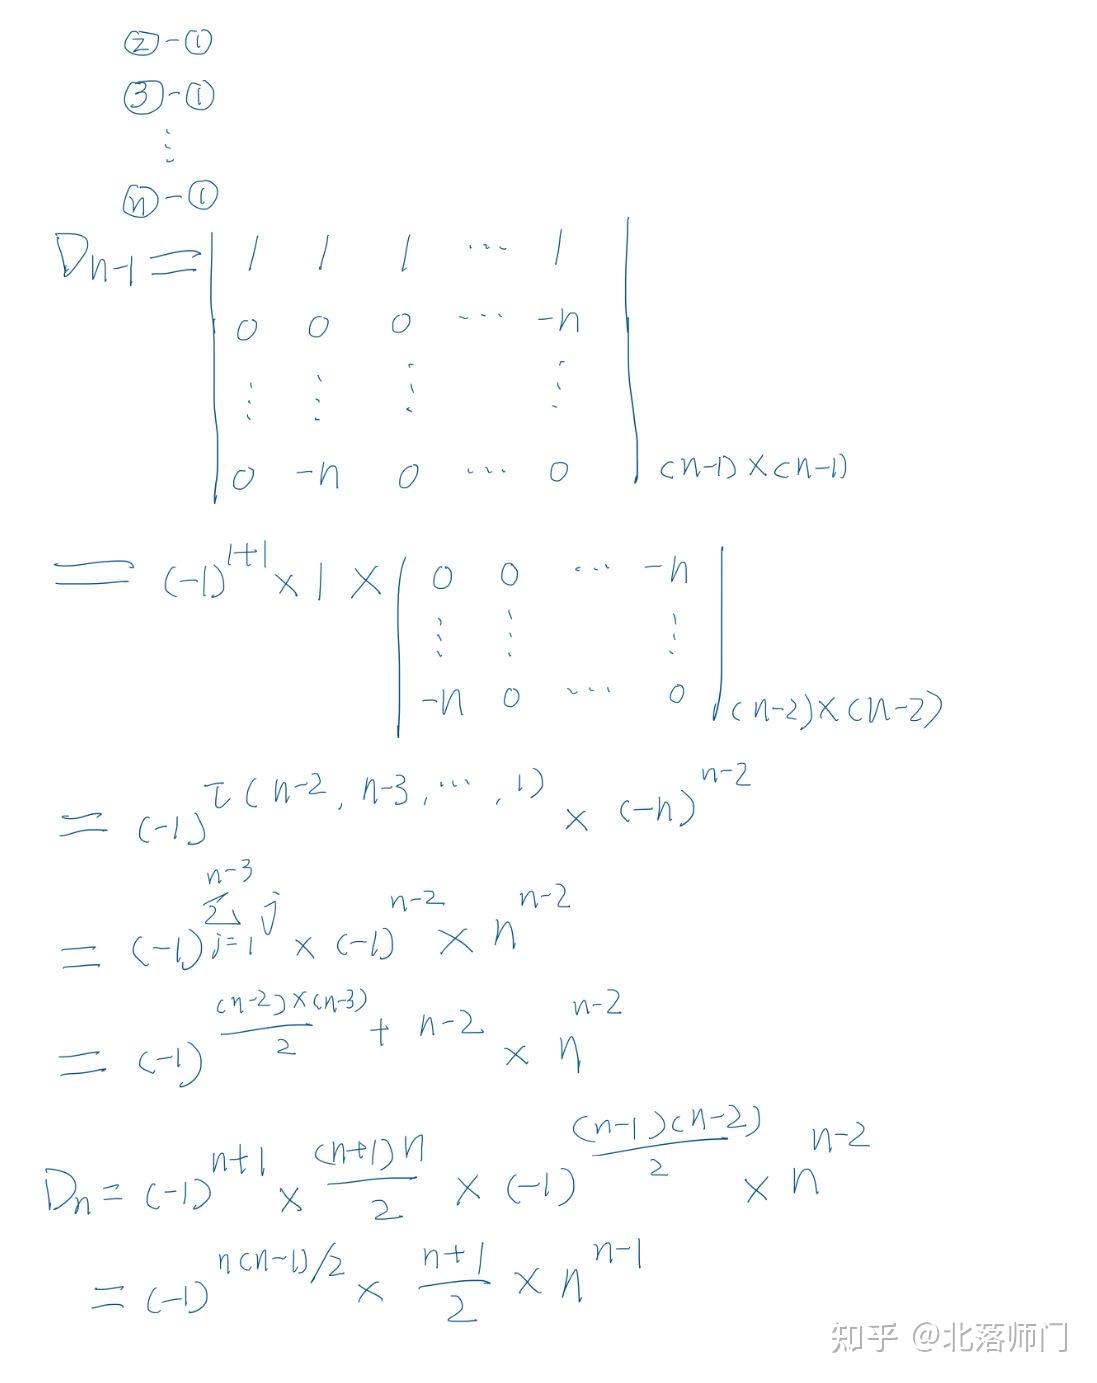 ②-①
③-①
⋮
ⓝ-①
D_{n-1} = | 1 1 1 ⋯ 1 |
| 0 0 0 ⋯ -n |
| ⋮ ⋮ ⋮ ⋮ |
| 0 -n 0 ⋯ 0 |_{(n-1)×(n-1)}
= (-1)^{1+1} × 1 × | 0 0 ⋯ -n |
| ⋮ ⋮ ⋮ |
| -n 0 ⋯ 0 |_{(n-2)×(n-2)}
= (-1)^{τ(n-2, n-3, ⋯, 1)} × (-n)^{n-2}
= (-1)^{\sum_{j=1}^{n-3} j} × (-1)^{n-2} × n^{n-2}
= (-1)^{\frac{(n-2)×(n-3)}{2} + n-2} × n^{n-2}
D_n = (-1)^{n+1} × \frac{(n+1)n}{2} × (-1)^{\frac{(n-1)(n-2)}{2}} × n^{n-2}
= (-1)^{n(n-1)/2} × \frac{n+1}{2} × n^{n-1}
知乎 @北落师门